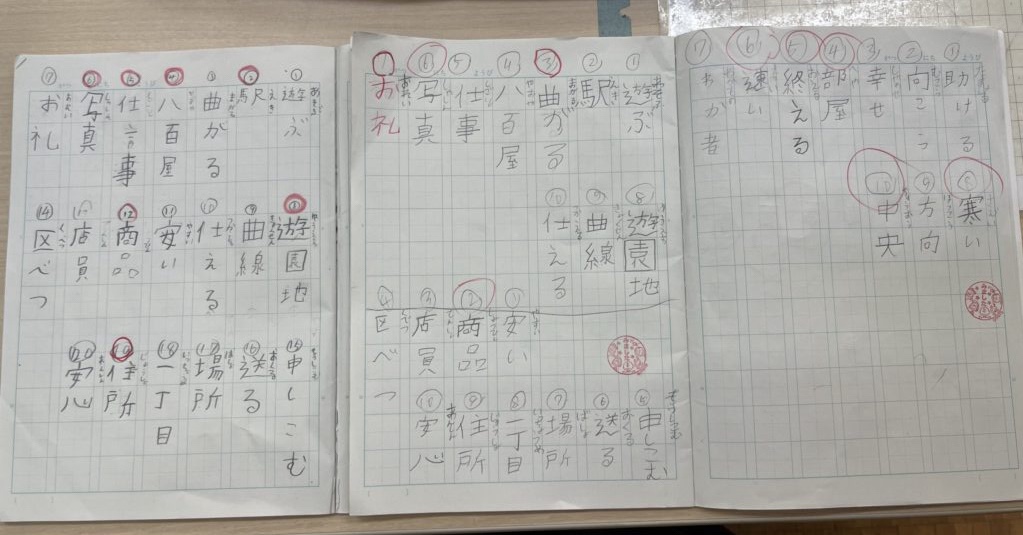 ①助ける
②向こう
③幸せ
④部屋
⑤終える
⑥速い
⑦わか者
⑧寒い
⑨方向
⑩中央
①遊ぶ
②駅
③曲がる
④八百屋
⑤仕事
⑥写真
⑦お礼
⑧遊園地
⑨曲線
⑩仕える
①安い
②商品
③店員
④区べつ
⑤申しこむ
⑥送る
⑦場所
⑧一丁目
⑨住所
⑩安心
①遊ぶ
②駅
③曲がる
④八百屋
⑤仕事
⑥写真
⑦お礼
⑧遊園地
⑨曲線
⑩仕える
⑪安い
⑫商品
⑬店員
⑭区べつ
⑮申しこむ
⑯送る
⑰場所
⑱一丁目
⑲住所
⑳安心